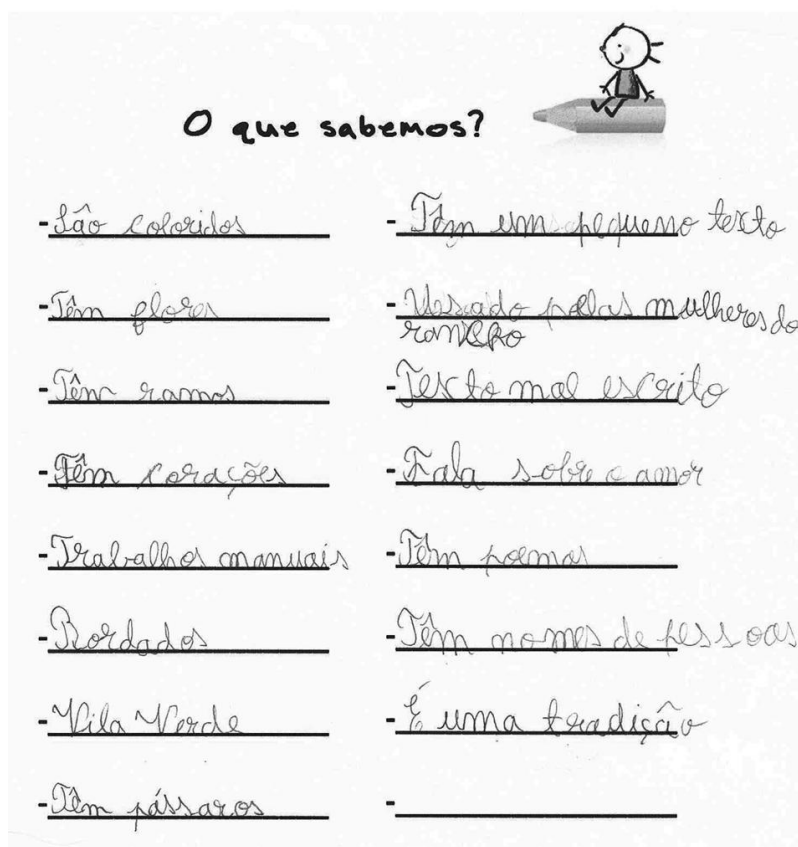 O que sabemos?
- São coloridos
- Têm flores
- Têm ramos
- Têm corações
- Trabalhos manuais
- Bordados
- Vila Verde
- Têm pássaros
- Têm um pequeno texto
- Usado pelas mulheres do
rancho
- Texto mal escrito
- Fala sobre o amor
- Têm poemas
- Têm nomes de pessoas
- É uma tradição
-